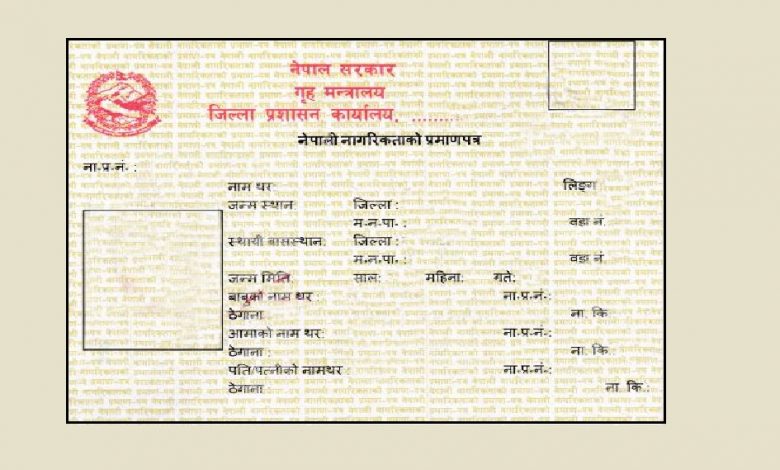 नेपाल सरकार
गृह मन्त्रालय
जिल्ला प्रशासन कार्यालय, ........
नेपाली नागरिकताको प्रमाणपत्र
ना.प्र.नं. :
नाम थर: लिङ्ग
जन्म स्थान जिल्ला :
म.न.पा. : वडा नं.
स्थायी बासस्थान: जिल्ला :
म.न.पा. : वडा नं.
जन्म मिति: साल: महिना: गते:
बाबुको नाम थर : ना.प्र.नं.:
ठेगाना : ना. कि
आमाको नाम थर: ना.प्र.नं.:
ठेगाना : ना. कि
पति/पत्नीको नामथर : ना.प्र.नं.:
ठेगाना : ना. कि.: